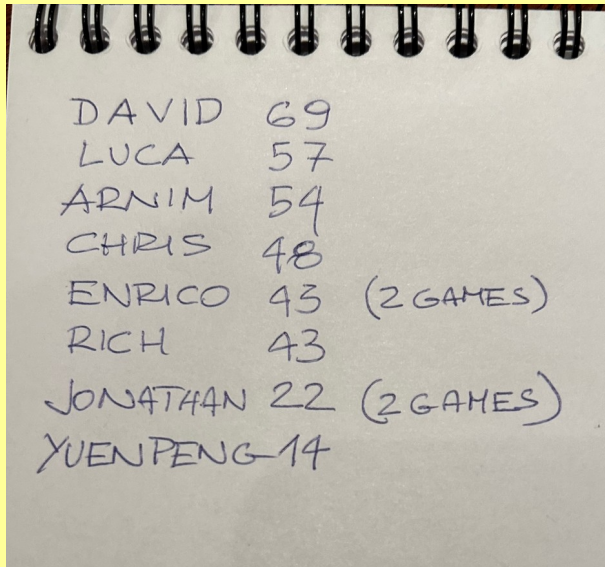 DAVID 69
LUCA 57
ARNIM 54
CHRIS 48
ENRICO 43 (2 GAMES)
RICH 43
JONATHAN 22 (2 GAMES)
YUENPENG 14